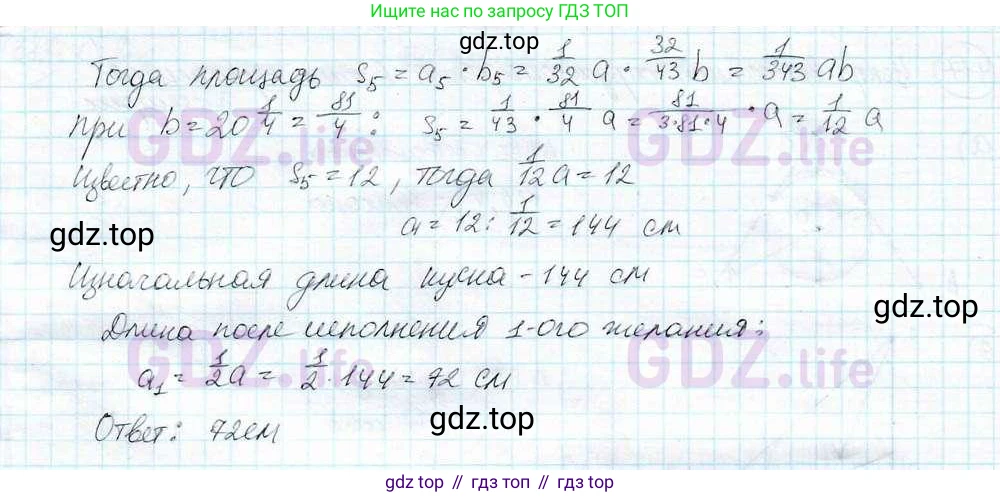 Ищите нас по запросу ГДЗ ТОП
Тогда площадь S₅ = a₅ · b₅ = 1/32 a · 32/43 b = 1/343 ab
при b = 20 1/4 = 81/4 : S₅ = 1/43 · 81/4 a = 81/3·81·4 · a = 1/12 a
GDZ.life GDZ.life
Известно, что S₅ = 12, тогда 1/12 a = 12
a = 12 : 1/12 = 144 см
gdz.top
Изначальная длина куска - 144 см
gdz.top
Длина после исполнения 1-ого желания:
GDZ.life GDZ.life
a₁ = 1/2 a = 1/2 · 144 = 72 см
gdz.top
Ответ: 72 см
gdz.top // gdz.top // gdz.top